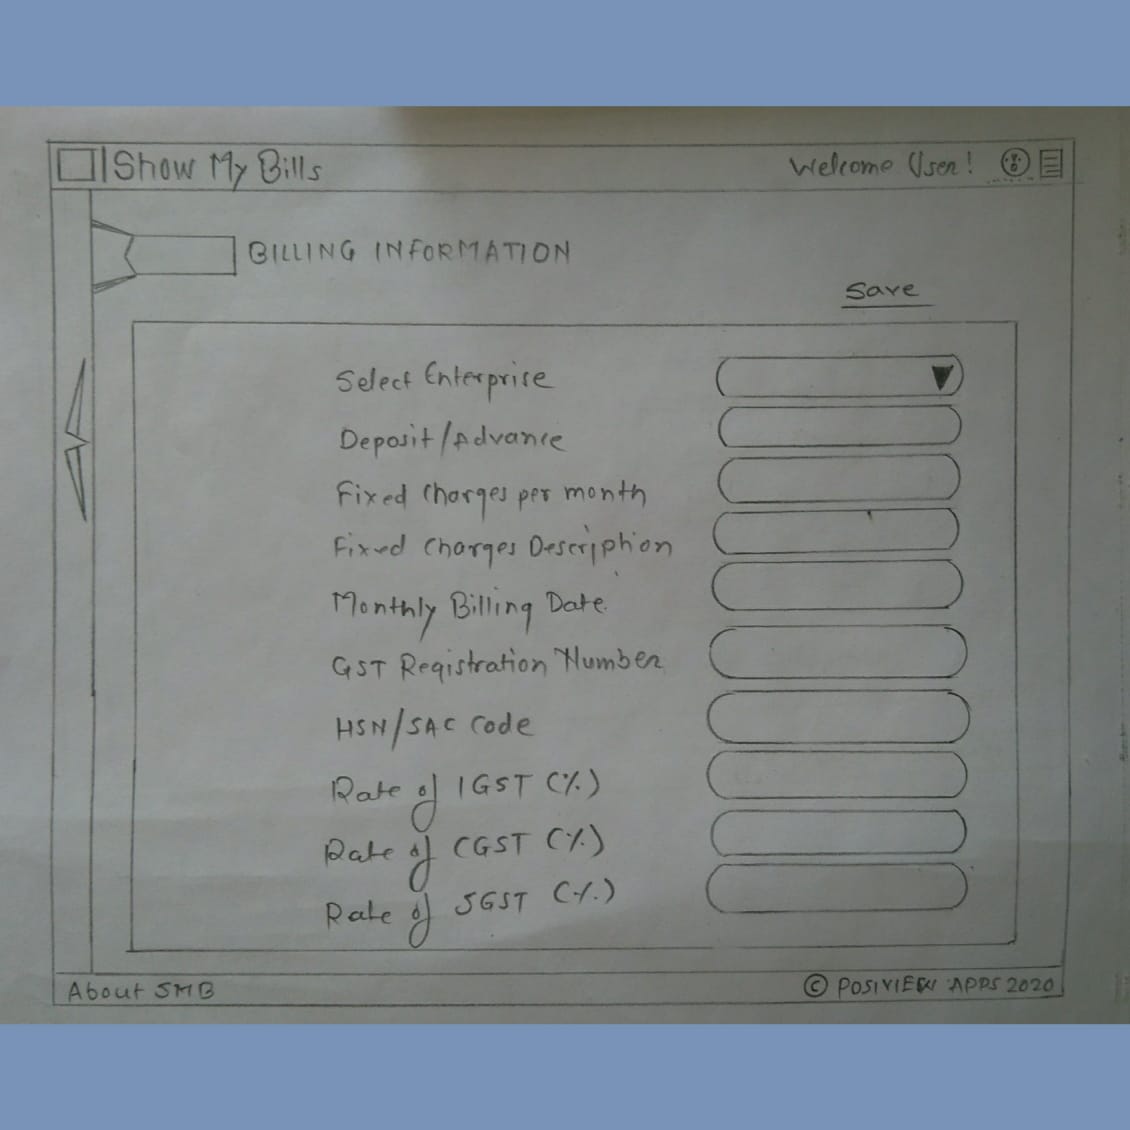 Show My Bills
Welcome User!
BILLING INFORMATION
Save
Select Enterprise
Deposit/Advance
Fixed Charges per month
Fixed Charges Description
Monthly Billing Date
GST Registration Number
HSN/SAC Code
Rate of IGST (%)
Rate of CGST (%)
Rate of SGST (%)
About SMB
© POSIVIEW APPS 2020